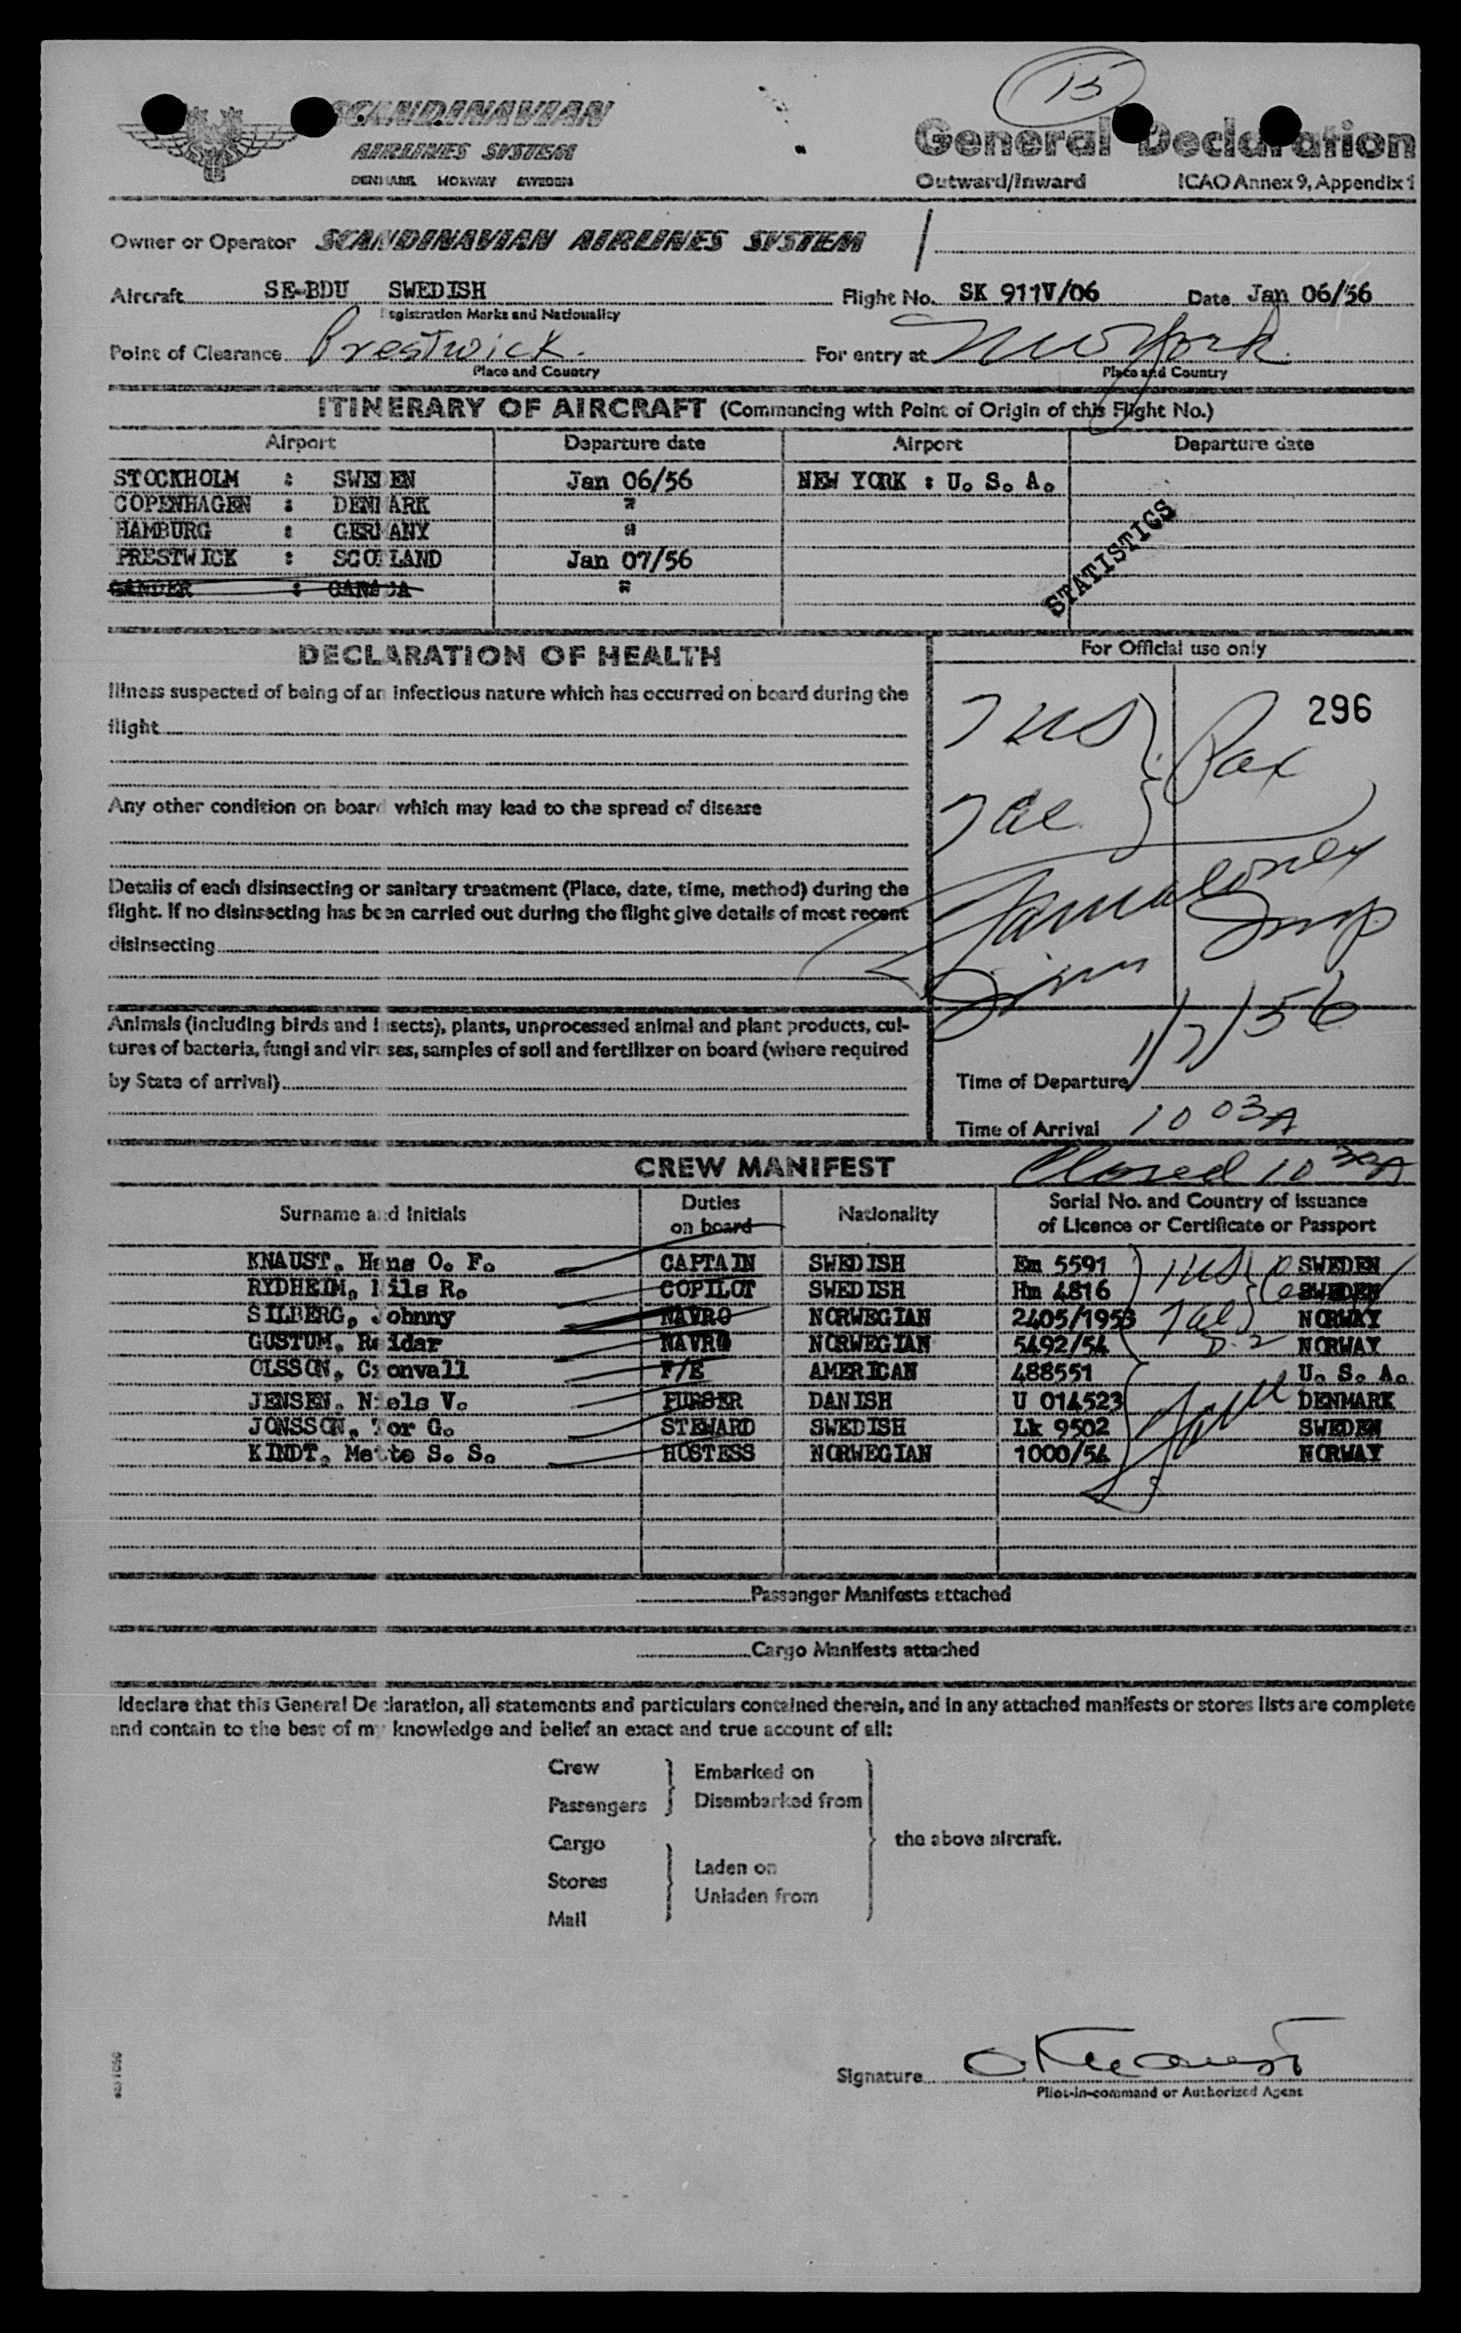 15
SCANDINAVIAN
AIRLINES SYSTEM
DENMARK NORWAY SWEDEN
General Declaration
Outward/Inward ICAO Annex 9, Appendix 1
Owner or Operator SCANDINAVIAN AIRLINES SYSTEM
Aircraft SE-BDU SWEDISH Flight No. SK 911V/06 Date Jan 06/56
Registration Marks and Nationality
Point of Clearance Prestwick. For entry at New York
Place and Country Place and Country
ITINERARY OF AIRCRAFT (Commencing with Point of Origin of this Flight No.)
Airport Departure date Airport Departure date
STOCKHOLM : SWEDEN Jan 06/56 NEW YORK : U. S. A.
COPENHAGEN : DENMARK "
HAMBURG : GERMANY "
PRESTWICK : SCOTLAND Jan 07/56
GANDER : CANADA "
STATISTICS
DECLARATION OF HEALTH
For Official use only
Illness suspected of being of an infectious nature which has occurred on board during the
flight
296
7 US
Pax
7 al
Any other condition on board which may lead to the spread of disease
Details of each disinsecting or sanitary treatment (Place, date, time, method) during the
flight. If no disinsecting has been carried out during the flight give details of most recent
disinsecting
Insp
1/7/56
Animals (including birds and insects), plants, unprocessed animal and plant products, cul-
tures of bacteria, fungi and viruses, samples of soil and fertilizer on board (where required
by State of arrival)
Time of Departure
Time of Arrival 10 03A
Closed 10 30A
CREW MANIFEST
Surname and Initials Duties on board Nationality Serial No. and Country of Issuance
of Licence or Certificate or Passport
KNAUST, Hans O. F. CAPTAIN SWEDISH Em 5591 1 US SWEDEN
RYDHEIM, Nils R. COPILOT SWEDISH Hm 4816 SWEDEN
SILBERG, Johnny NAVRO NORWEGIAN 2405/1953 7 al NORWAY
GUSTUM, Reidar NAVRO NORWEGIAN 5492/54 D-2 NORWAY
OLSSON, Cronvall F/E AMERICAN 488551 U. S. A.
JENSEN, Niels V. PURSER DANISH U 014523 DENMARK
JONSSON, Tor G. STEWARD SWEDISH Lk 9502 SWEDEN
KINDT, Mette S. S. HOSTESS NORWEGIAN 1000/54 NORWAY
Passenger Manifests attached
Cargo Manifests attached
I declare that this General Declaration, all statements and particulars contained therein, and in any attached manifests or stores lists are complete
and contain to the best of my knowledge and belief an exact and true account of all:
Crew
Passengers
Embarked on
Disembarked from
Cargo
Stores
Mail
Laden on
Unladen from
the above aircraft.
Signature O Knaust
Pilot-in-command or Authorized Agent